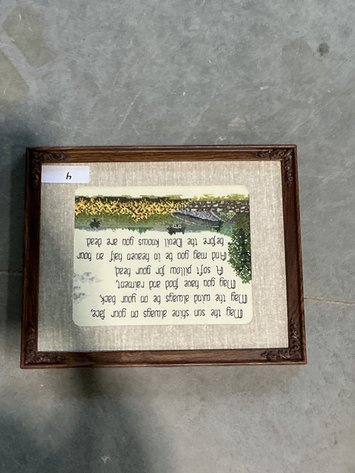 May the sun shine always on your face,
May the wind always be on your back.
May you have food and raiment,
A soft pillow for your head.
And may you be in heaven half an hour
before the Devil knows you are dead.
4